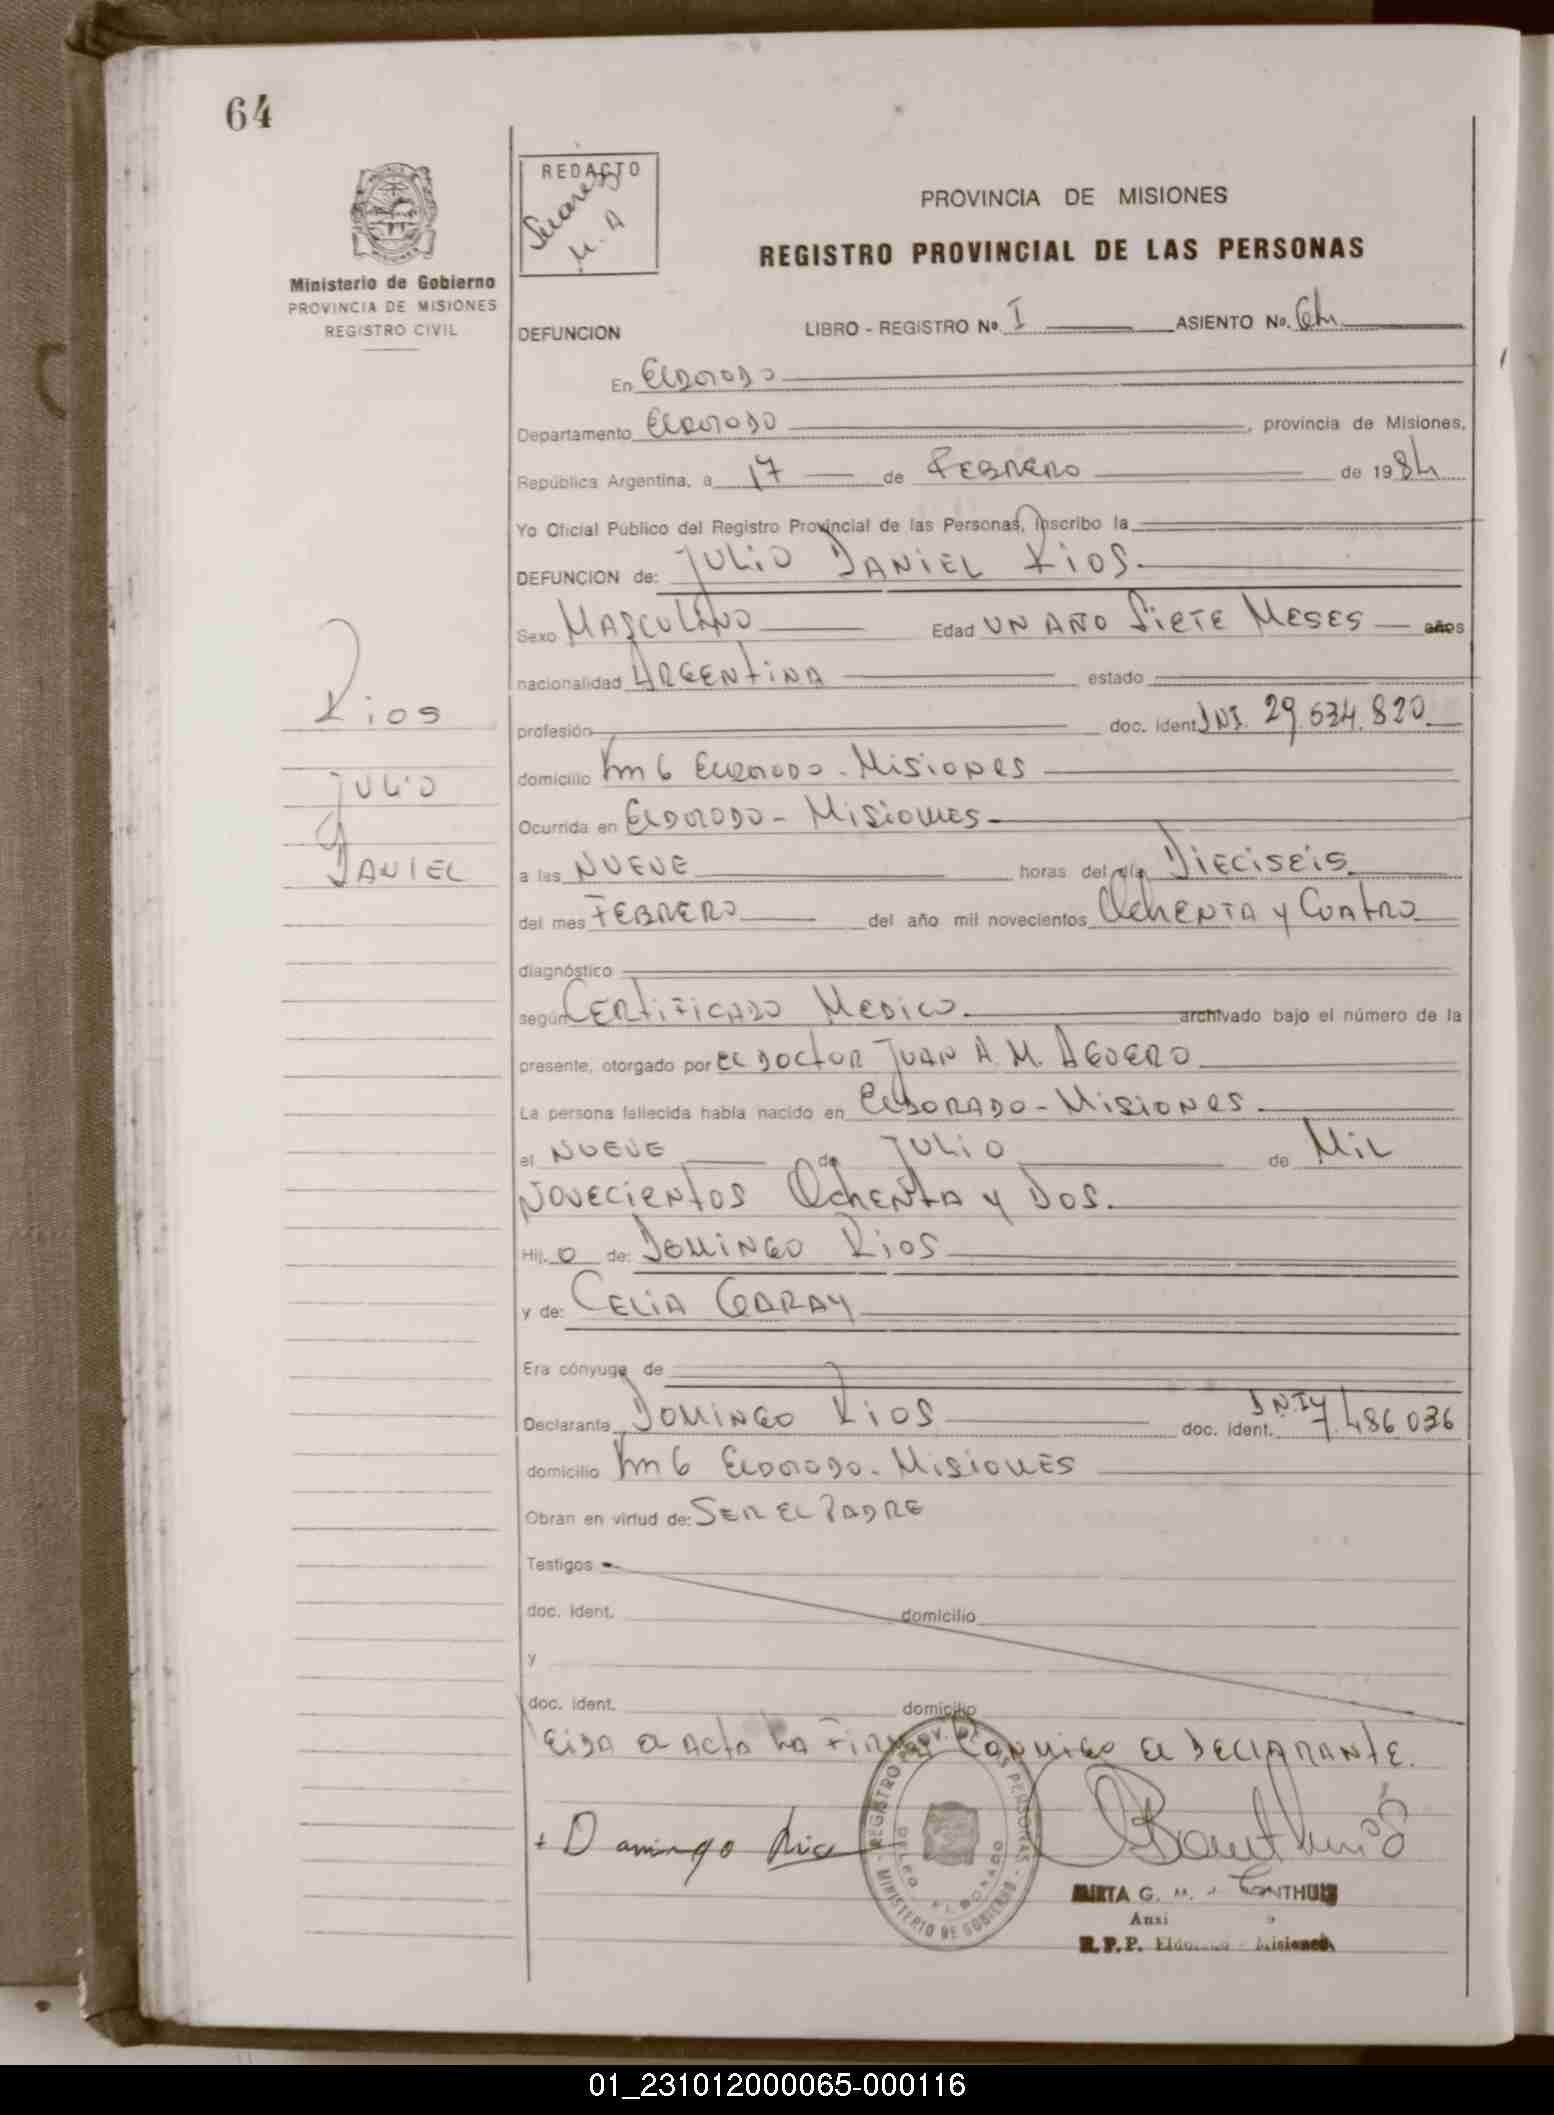 64
REDACTO
Suarez
M. A
PROVINCIA DE MISIONES
REGISTRO PROVINCIAL DE LAS PERSONAS
Ministerio de Gobierno
PROVINCIA DE MISIONES
REGISTRO CIVIL
DEFUNCION LIBRO - REGISTRO No. I ASIENTO No. 64
En ELDORADO
Departamento ELDORADO, provincia de Misiones,
República Argentina, a 17 de FEBRERO de 1984
Yo Oficial Público del Registro Provincial de las Personas, inscribo la
DEFUNCION de: JULIO DANIEL RIOS.
Sexo MASCULINO Edad UN AÑO SIETE MESES años
nacionalidad ARGENTINA estado
profesión doc. ident. DNI. 29.634.820
domicilio Km 6 ELDORADO - MISIONES
Ocurrida en ELDORADO - MISIONES
a las NUEVE horas del día DIECISEIS
del mes FEBRERO del año mil novecientos OCHENTA y CUATRO
diagnóstico
según CERTIFICADO MEDICO archivado bajo el número de la
presente, otorgado por EL DOCTOR JUAN A. M. AGUERO
La persona fallecida había nacido en ELDORADO - MISIONES
el NUEVE de JULIO de MIL
NOVECIENTOS OCHENTA y DOS.
Hij o de: DOMINGO RIOS
y de: CELIA GARAY
Era cónyuge de
Declarante DOMINGO RIOS doc. ident. DNI 7.486.036
domicilio Km 6 ELDORADO - MISIONES
Obran en virtud de: SER EL PADRE
Testigos
doc. ident. domicilio
y
doc. ident. domicilio
LEIDA EL ACTA LA FIRMA CONMIGO EL DECLARANTE.
Rios
JULIO
DANIEL
+ Domingo Rios
REGISTRO PROV. DE LAS PERSONAS
MINISTERIO DE GOBIERNO
ELDORADO
MIRTA G. M.
R.P.P. Eldorado - Misiones
01_231012000065-000116